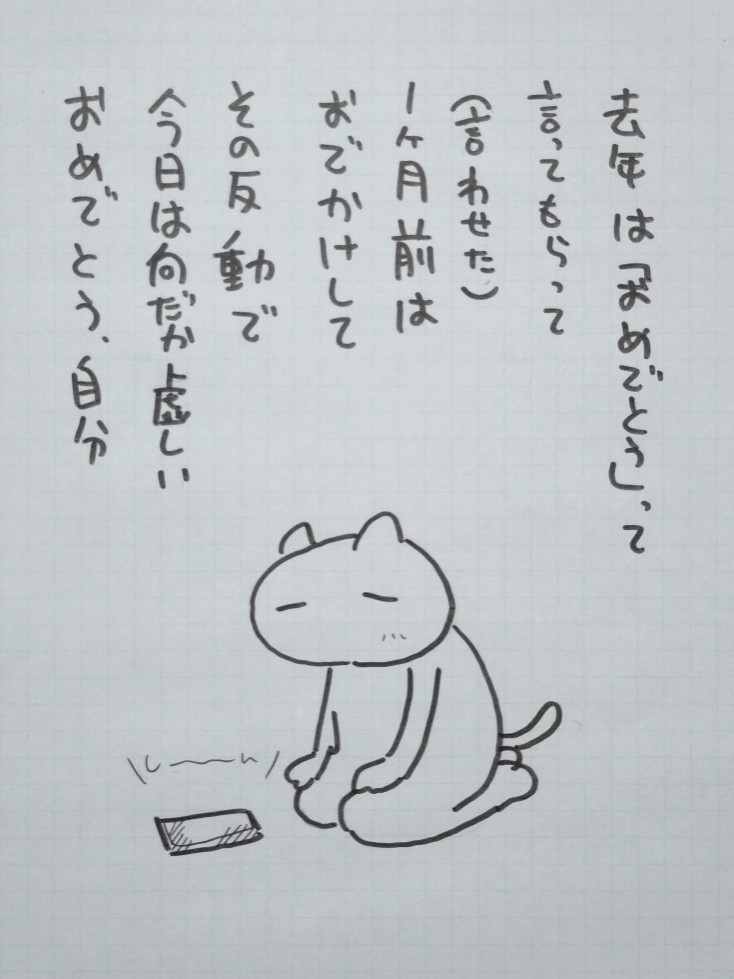 去年は「おめでとう」って
言ってもらって
(言わせた)
1ヶ月前は
おでかけして
その反動で
今日は何だか虚しい
おめでとう、自分
しーーん